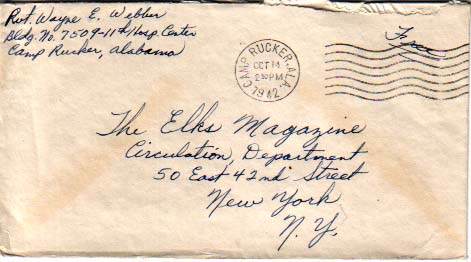 Pvt. Wayne E. Webber
Bldg. No. 7509-11th Hosp Center
Camp Rucker, Alabama
Free
CAMP RUCKER, ALA.
OCT 14
2 30 PM
1942
The Elks Magazine
Circulation, Department
50 East 42nd Street
New York
N. Y.